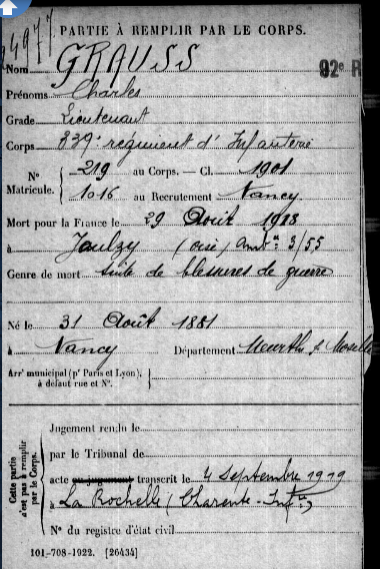 24977
PARTIE À REMPLIR PAR LE CORPS.
92e R
Nom GRAUSS
Prénoms Charles
Grade Lieutenant
Corps 339e régiment d'Infanterie
N° Matricule. { 219 au Corps. — Cl. 1901
1016 au Recrutement Nancy
Mort pour la France le 29 Août 1918
à Jaulzy (oise) Ambce 3/55
Genre de mort suite de blessures de guerre
Né le 31 Août 1881
à Nancy Département Meurthe & Moselle
Arrt municipal (pr Paris et Lyon), à défaut rue et N°.
Cette partie n'est pas à remplir par le Corps.
Jugement rendu le
par le Tribunal de
acte ou jugement transcrit le 4 Septembre 1919
à La Rochelle (Charente-Infre)
N° du registre d'état civil
101-708-1922. [26434]